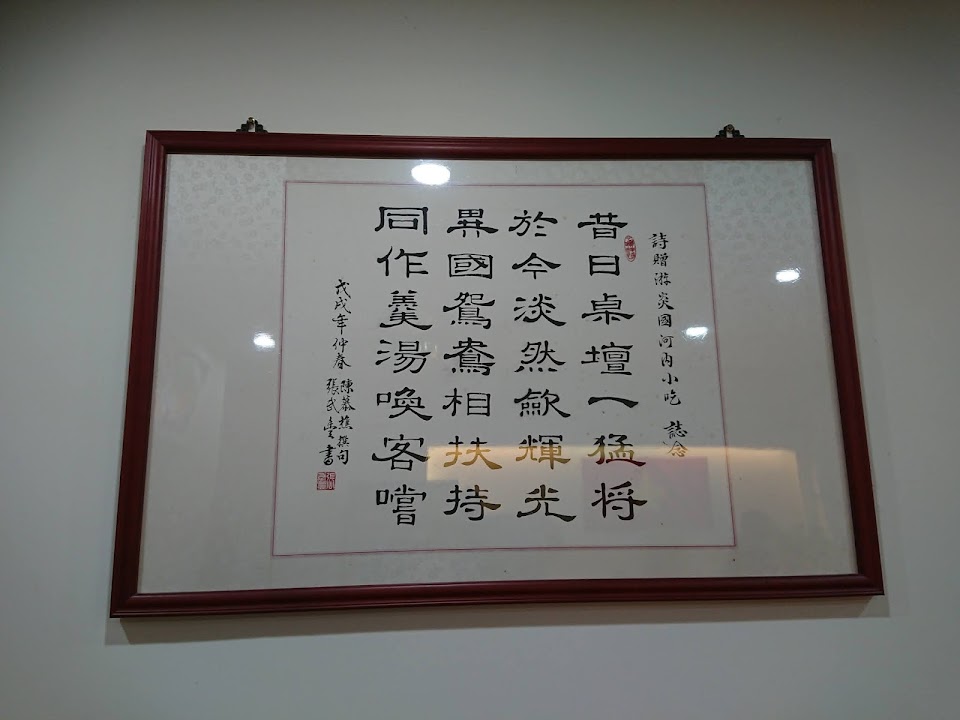 詩贈游炎國河內小吃 誌念
昔日桌壇一猛将
於今淡然斂輝光
異國鴛鴦相扶持
同作羹湯喚客嚐
戊戌年仲春
陳慕樵撰句
張武書